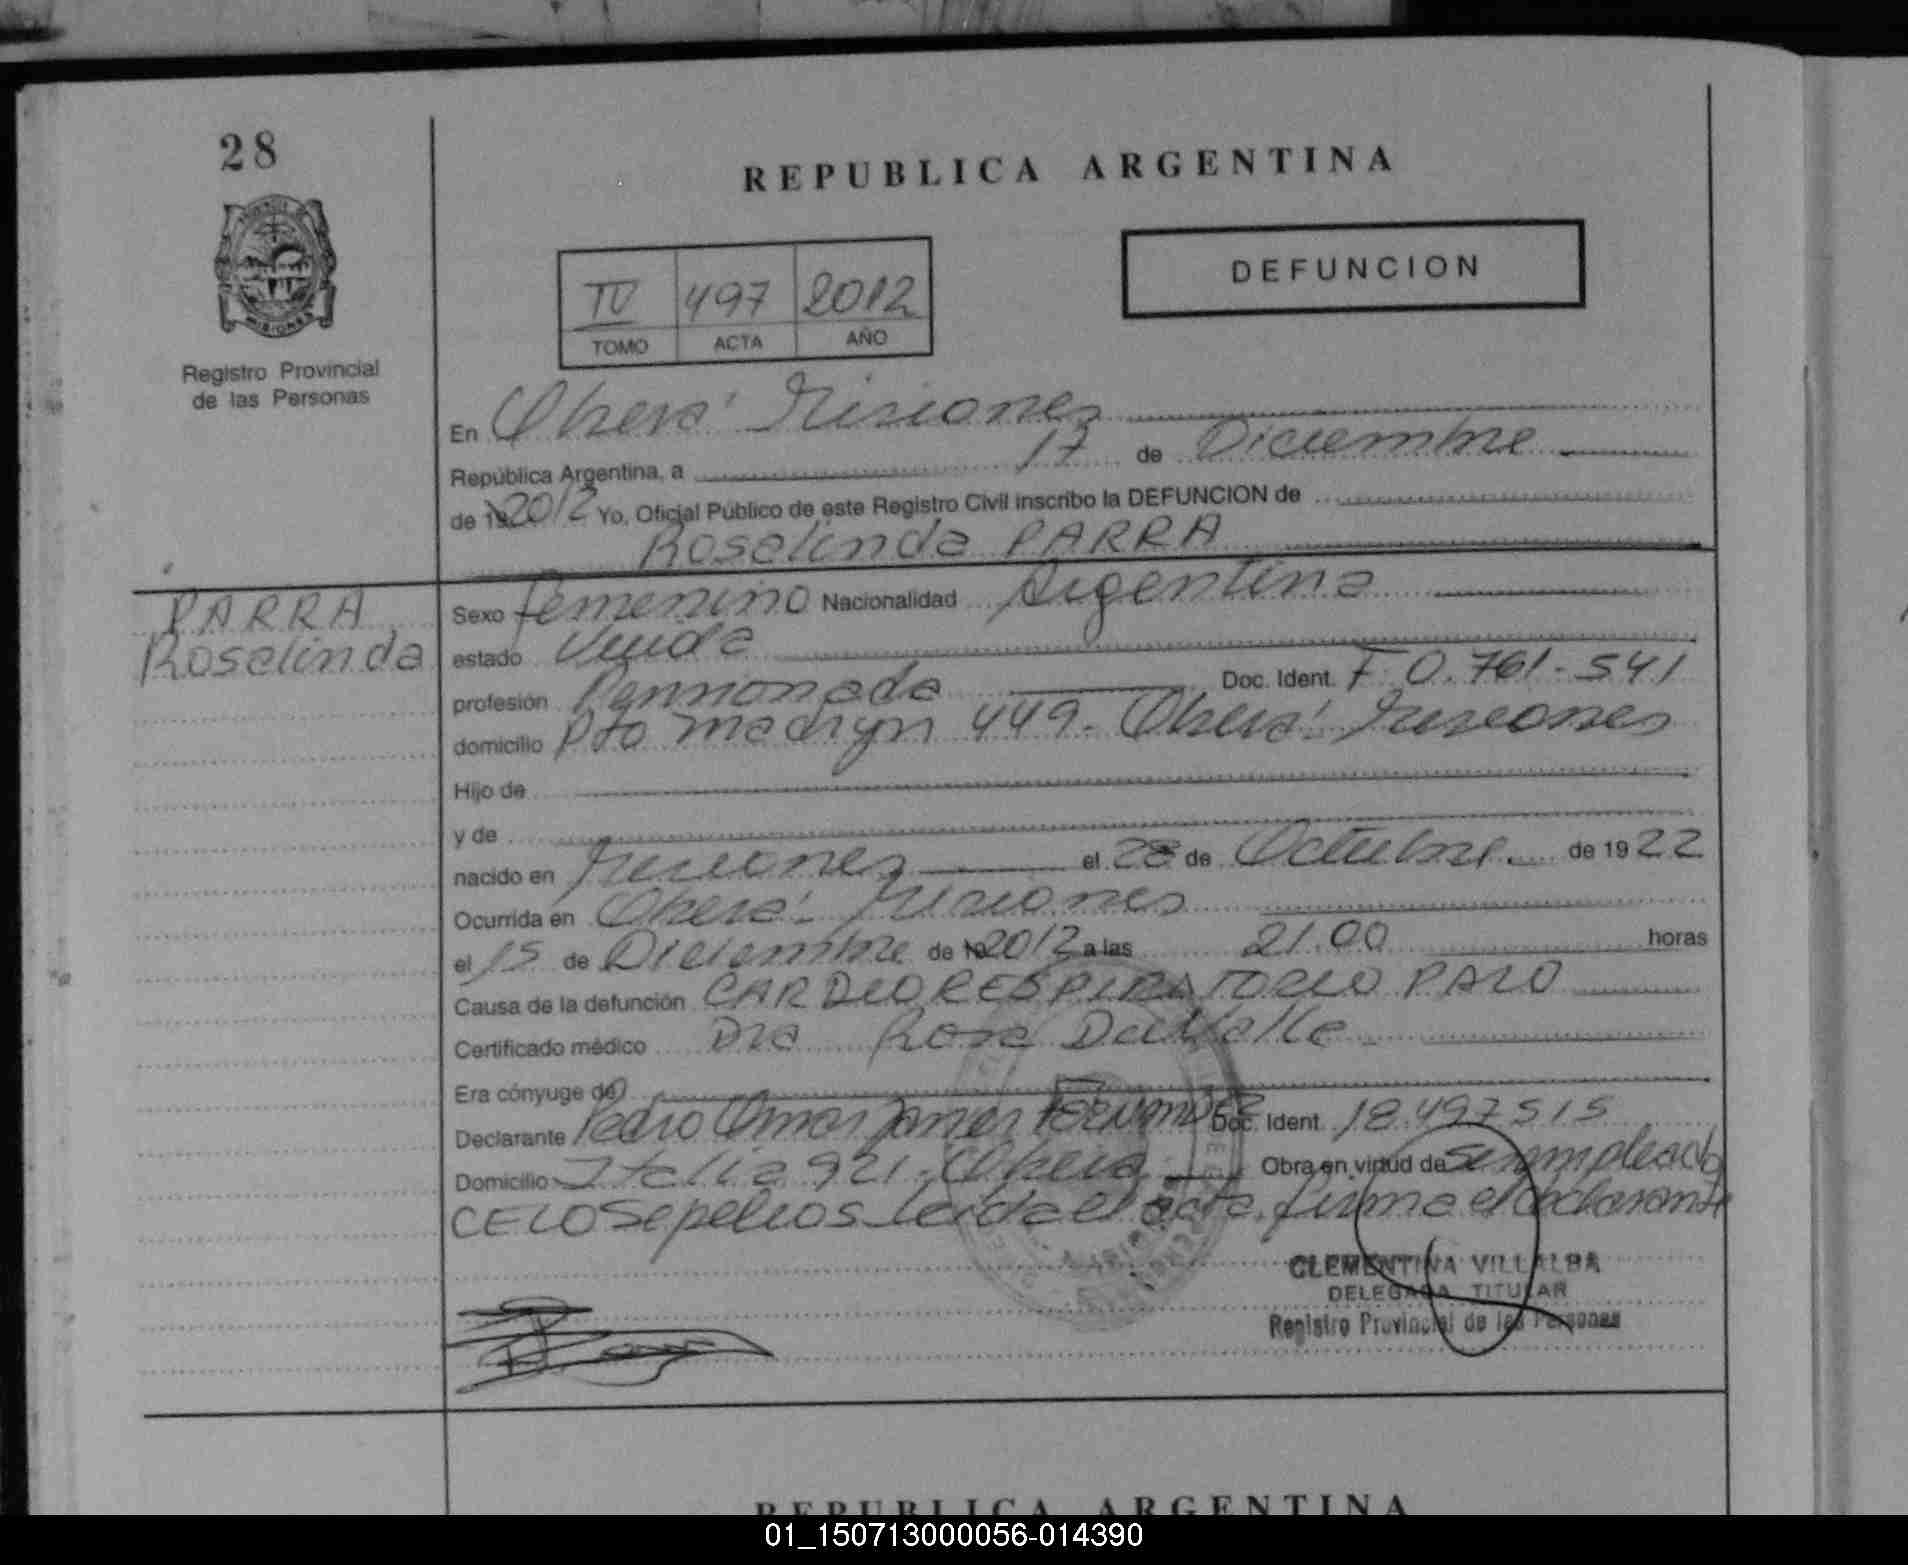 28
REPUBLICA ARGENTINA
DEFUNCION
IV 497 2012
TOMO ACTA AÑO
MISIONES
Registro Provincial
de las Personas
En Oberá Misiones
República Argentina, a 17 de Diciembre
de 192012 Yo, Oficial Público de este Registro Civil inscribo la DEFUNCION de
Roselinda PARRA
PARRA
Roselinda
Sexo femenino Nacionalidad Argentina
estado Viuda
profesión Pensionada Doc. Ident. F 0.761-541
domicilio Pto madryn 449- Oberá Misiones
Hijo de
y de
nacido en Misiones el 28 de Octubre de 1922
Ocurrida en Oberá- Misiones
el 15 de Diciembre de 192012 a las 21.00 horas
Causa de la defunción CARDIORESPIRATORIO PARO
Certificado médico Dra Rosa DaValle
Era cónyuge de
Declarante Pedro Omar Fernandez Doc. Ident. 18.497515
Domicilio Italia 921- Oberá Obra en virtud de ser empleado
CELO Sepelios leida el acta firma el declarante
CLEMENTINA VILLALBA
DELEGADA TITULAR
Registro Provincial de las Personas
REPUBLICA ARGENTINA
01_150713000056-014390